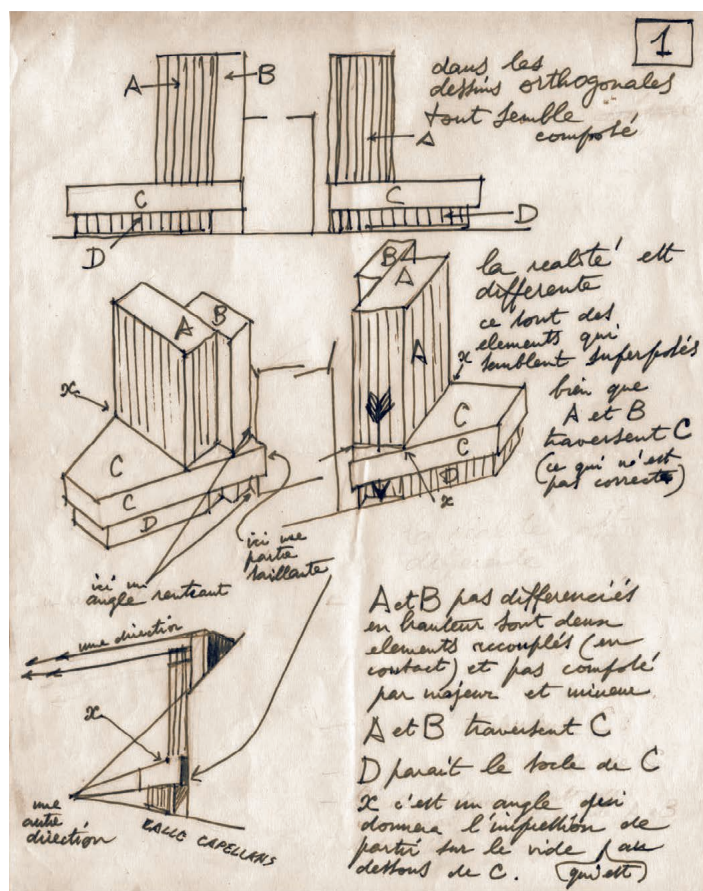 1
A
B
dans les
dessins orthogonales
tout semble
composé
A
C
C
D
D
la realité est
differente
ce sont des
elements qui
semblent superposés
bien que
A et B
traversent C
(ce qui n'est
pas correcte)
A
B
x
C
C
D
B
A
A
x
C
C
D
x
ici un
angle rentrant
ici une
partie
saillante
une direction
x
une
autre
direction
CALLE CAPELLANS
A et B pas differenciés
en hauteur sont deux
elements recouplés (en
contact) et pas composé
par majeur et mineur.
A et B traversent C
D parait le socle de C
x c'est un angle qui
donnera l'impression de
partir sur le vide
dessous de C. (qui est)